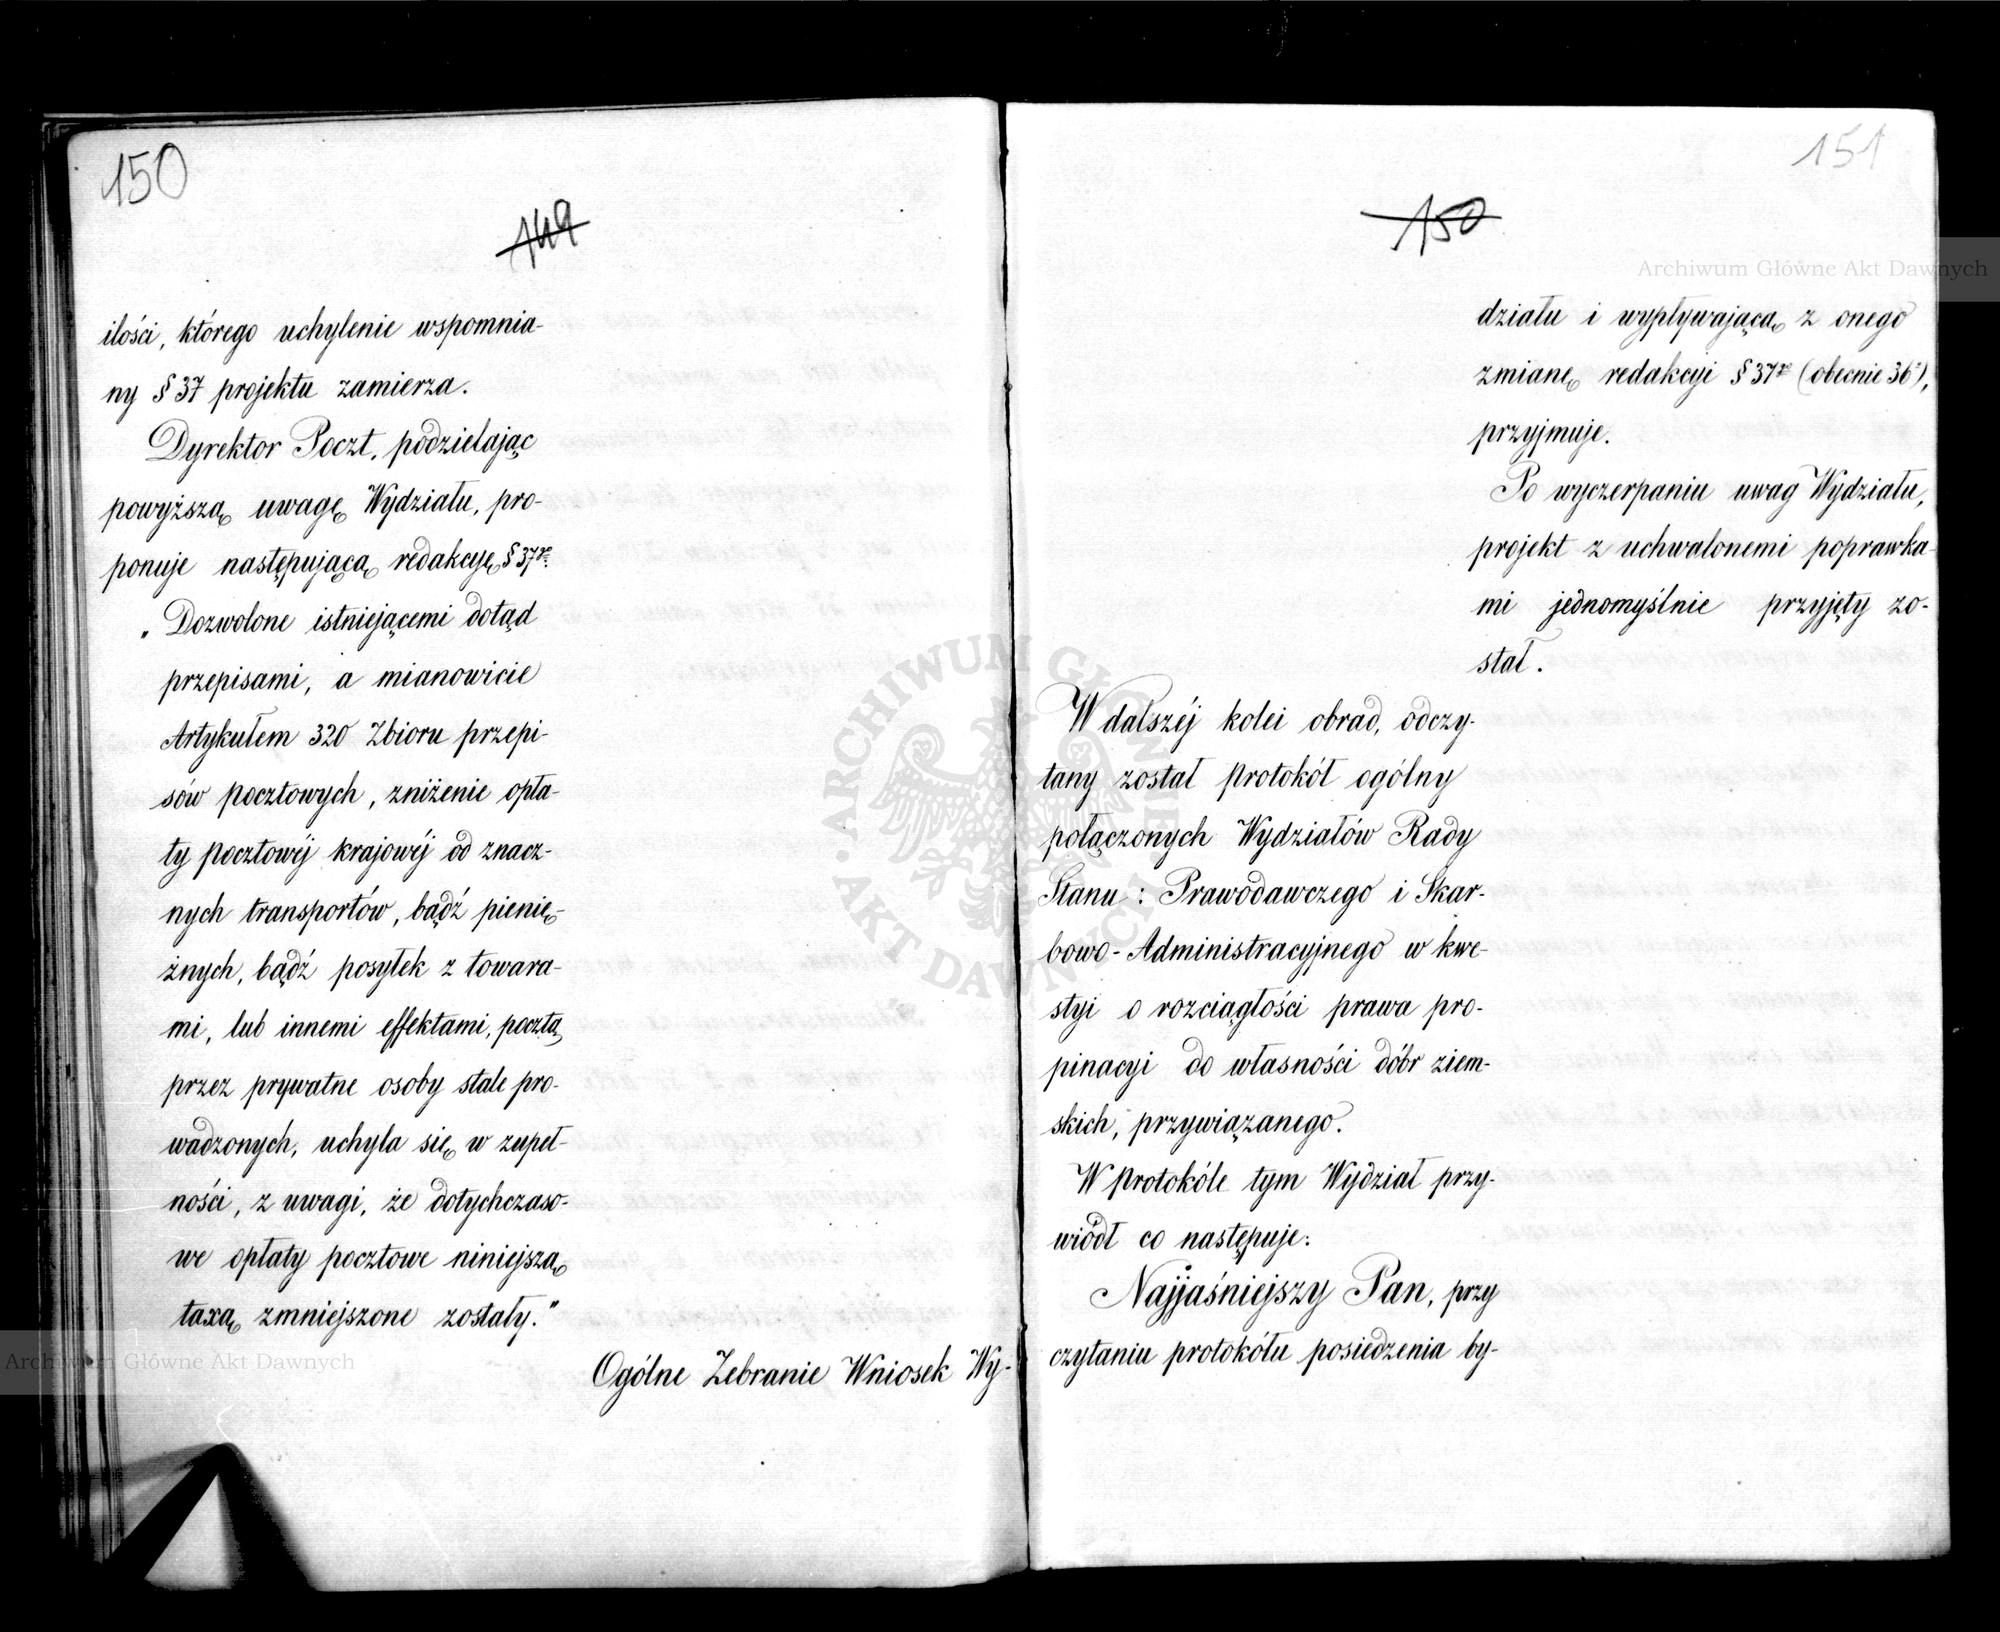 150
149
ilości, którego uchylenie wspomnia-
ny § 37 projektu zamierza.
Dyrektor Poczt, podzielając
powyższą uwagę Wydziału, pro-
ponuje następującą redakcyę § 37go:
„Dozwolone istniejącemi dotąd
przepisami, a mianowicie
Artykułem 320 Zbioru przepi-
sów pocztowych, zniżenie opła-
ty pocztowéj krajowéj od znacz-
nych transportów, bądź pienię-
żnych, bądź posyłek z towara-
mi, lub innemi effektami, pocztą
przez prywatne osoby stale pro-
wadzonych, uchyla się w zupeł-
ności, z uwagi, że dotychczaso-
we opłaty pocztowe niniejszą
taxą zmniejszone zostały."
Ogólne Zebranie Wniosek Wy-
151
150
działu i wypływającą z onego
zmianę redakcyi § 37go (obecnie 36o),
przyjmuje.
Po wyczerpaniu uwag Wydziału,
projekt z uchwalonemi poprawka-
mi jednomyślnie przyjęty zo-
stał.
W dalszéj kolei obrad, odczy-
tany został protokół ogólny
połączonych Wydziałów Rady
Stanu: Prawodawczego i Skar-
bowo-Administracyjnego w kwe-
styi o rozciągłości prawa pro-
pinacyi do własności dóbr ziem-
skich, przywiązanego.
W protokóle tym Wydział przy-
wiódł co następuje:
Najjaśniejszy Pan, przy
czytaniu protokółu posiedzenia by-
Archiwum Główne Akt Dawnych
Archiwum Główne Akt Dawnych
ARCHIWUM GŁÓWNE AKT DAWNYCH